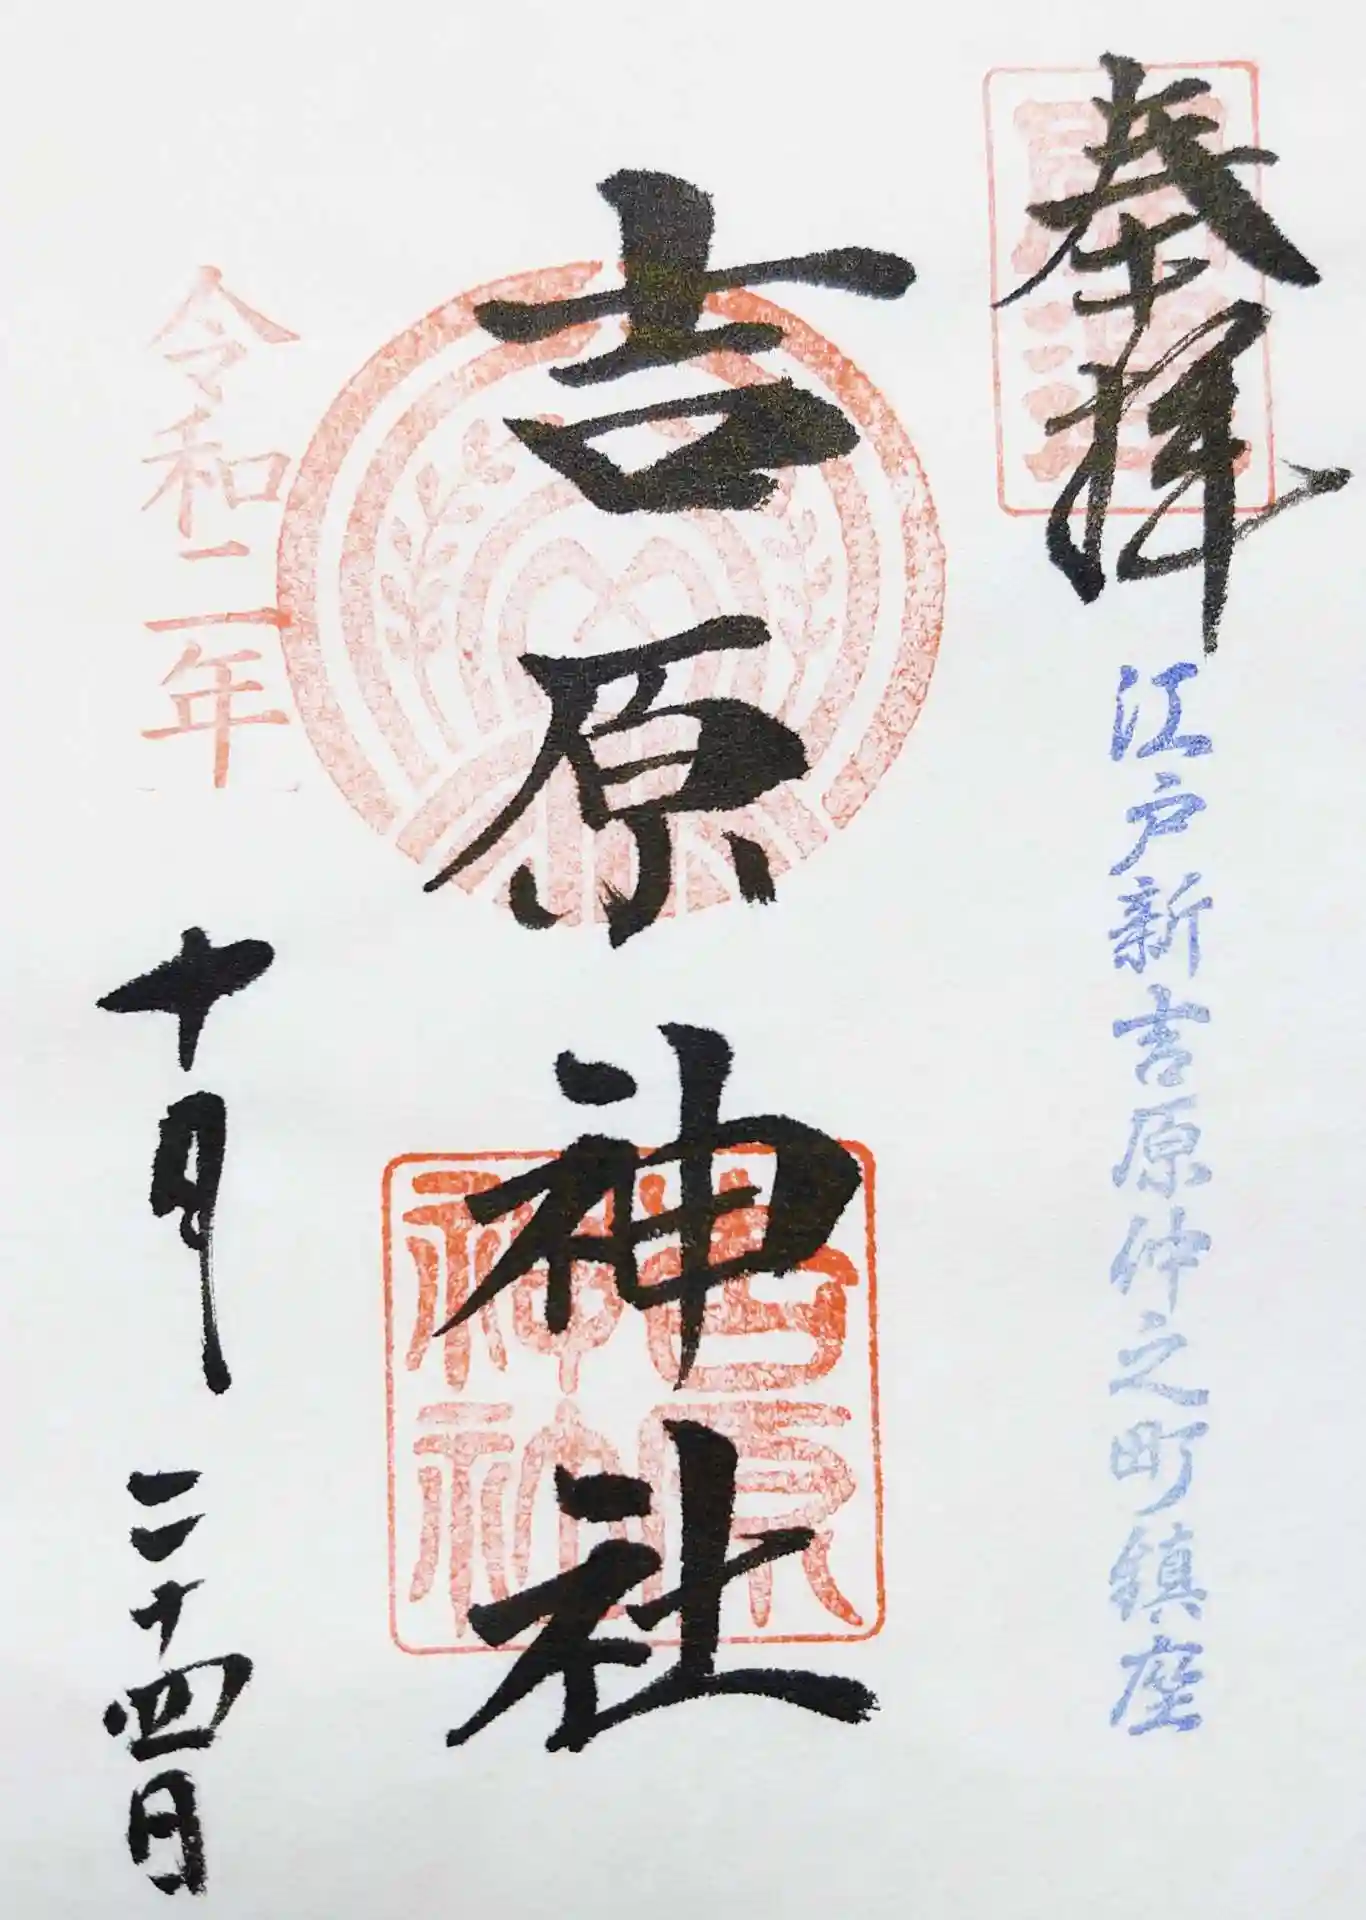 奉拝
江戸新吉原仲之町鎮座
吉原神社
吉原
神社
令和二年
十月二十四日